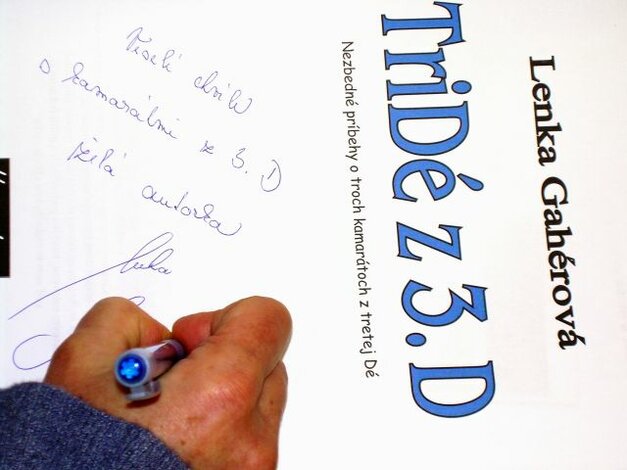 Lenka Gahérová
TriDé z 3. D
Nezbedné príbehy o troch kamarátoch z tretej Dé
Veselé chvíle
s kamarátmi z 3. D
želá autorka
Lenka